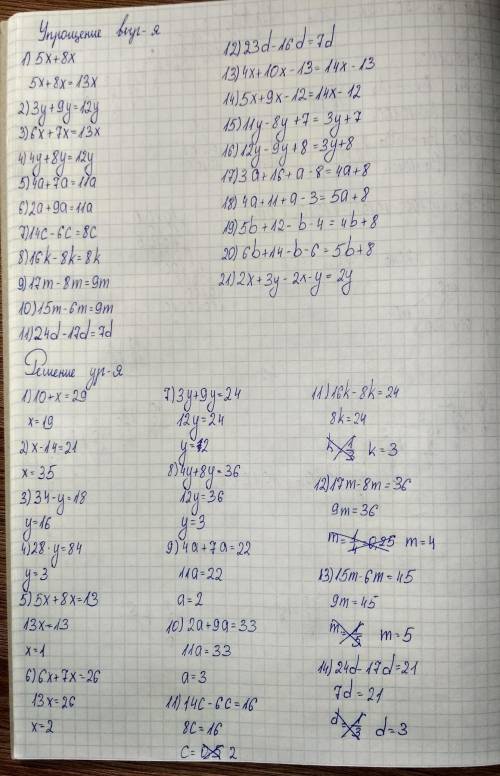 Упрощение выр-я
1) 5x+8x
5x+8x=13x
2) 3y+9y=12y
3) 6x+7x=13x
4) 4y+8y=12y
5) 4a+7a=11a
6) 2a+9a=11a
7) 14c-6c=8c
8) 16k-8k=8k
9) 17m-8m=9m
10) 15m-6m=9m
11) 24d-17d=7d
12) 23d-16d=7d
13) 4x+10x-13=14x-13
14) 5x+9x-12=14x-12
15) 11y-8y+7=3y+7
16) 12y-9y+8=3y+8
17) 3a+16+a-8=4a+8
18) 4a+11+a-3=5a+8
19) 5b+12-b-4=4b+8
20) 6b+14-b-6=5b+8
21) 2x+3y-2x-y=2y
Решение ур-я
1) 10+x=29
x=19
2) x-14=21
x=35
3) 34-y=18
y=16
4) 28·y=84
y=3
5) 5x+8x=13
13x=13
x=1
6) 6x+7x=26
13x=26
x=2
7) 3y+9y=24
12y=24
y=2
8) 4y+8y=36
12y=36
y=3
9) 4a+7a=22
11a=22
a=2
10) 2a+9a=33
11a=33
a=3
11) 14c-6c=16
8c=16
c=0,5 2
11) 16k-8k=24
8k=24
k=1/3 k=3
12) 17m-8m=36
9m=36
m=1/4=0,25 m=4
13) 15m-6m=45
9m=45
m=1/5 m=5
14) 24d-17d=21
7d=21
d=1/3 d=3